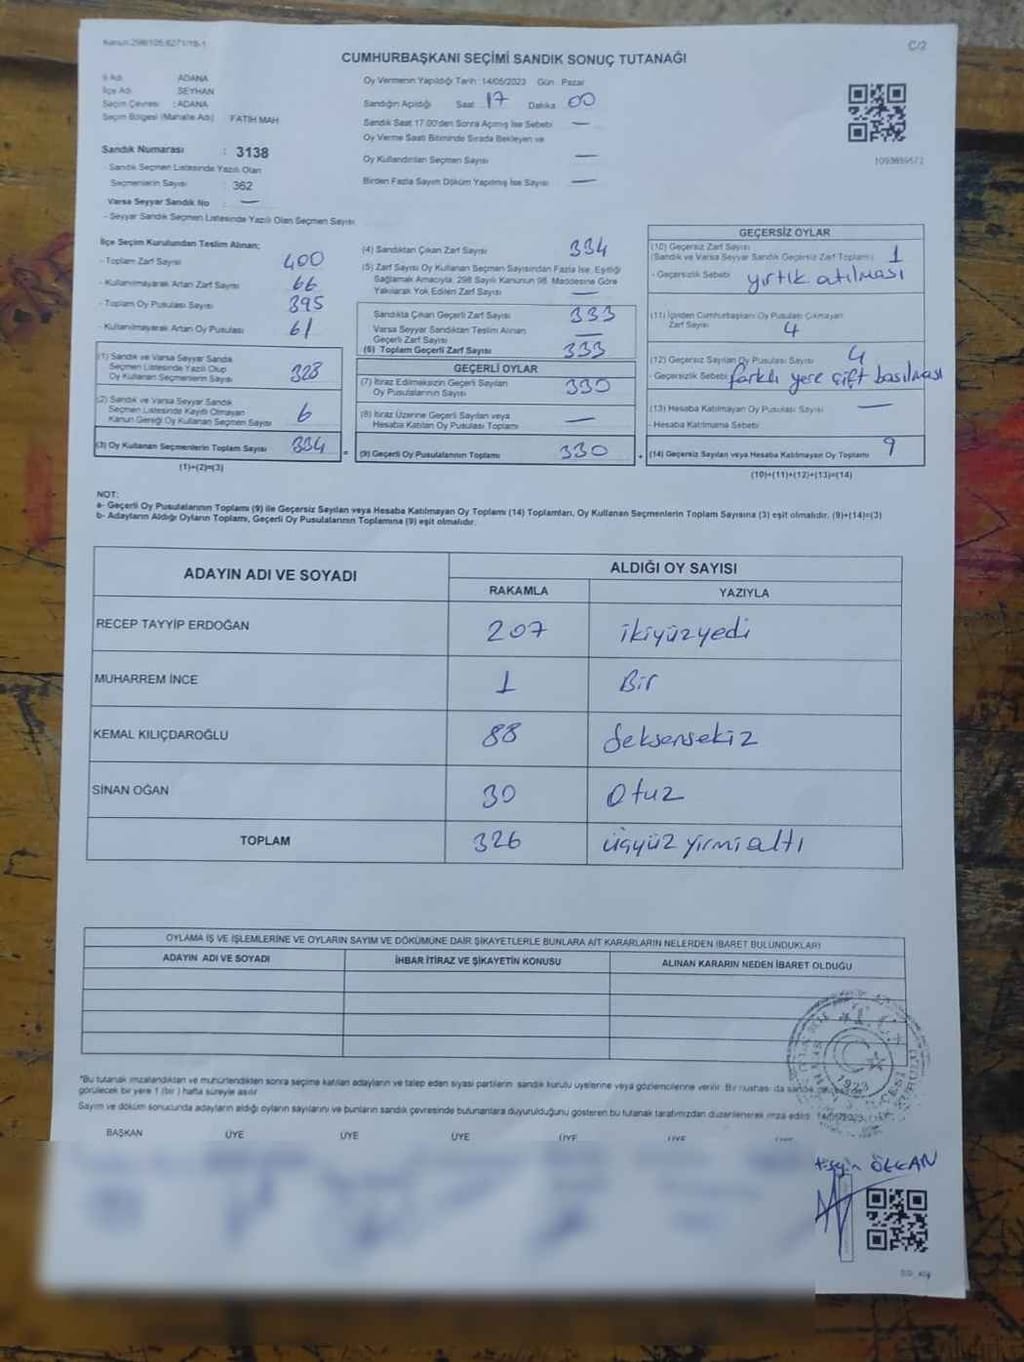 Kanun:298/105,6271/18-1
C/2
CUMHURBAŞKANI SEÇİMİ SANDIK SONUÇ TUTANAĞI
İl Adı ADANA
İlçe Adı SEYHAN
Seçim Çevresi : ADANA
Seçim Bölgesi (Mahalle Adı) FATİH MAH
Sandık Numarası : 3138
- Sandık Seçmen Listesinde Yazılı Olan
Seçmenlerin Sayısı : 362
Varsa Seyyar Sandık No : —
- Seyyar Sandık Seçmen Listesinde Yazılı Olan Seçmen Sayısı
Oy Vermenin Yapıldığı Tarih :14/05/2023 Gün: Pazar
Sandığın Açıldığı Saat 17 Dakika 00
Sandık Saat 17.00'den Sonra Açılmış İse Sebebi —
Oy Verme Saati Bitiminde Sırada Bekleyen ve
Oy Kullandırılan Seçmen Sayısı —
Birden Fazla Sayım Döküm Yapılmış İse Sayısı —
İlçe Seçim Kurulundan Teslim Alınan;
- Toplam Zarf Sayısı 400
- Kullanılmayarak Artan Zarf Sayısı 66
- Toplam Oy Pusulası Sayısı 395
- Kullanılmayarak Artan Oy Pusulası 61
(1) Sandık ve Varsa Seyyar Sandık
Seçmen Listesinde Yazılı Olup
Oy Kullanan Seçmenlerin Sayısı 328
(2) Sandık ve Varsa Seyyar Sandık
Seçmen Listesinde Kayıtlı Olmayan
Kanun Gereği Oy Kullanan Seçmen Sayısı 6
(3) Oy Kullanan Seçmenlerin Toplam Sayısı 334
(1)+(2)=(3)
(4) Sandıktan Çıkan Zarf Sayısı 334
(5) Zarf Sayısı Oy Kullanan Seçmen Sayısından Fazla İse, Eşitliği
Sağlamak Amacıyla, 298 Sayılı Kanunun 98. Maddesine Göre
Yakılarak Yok Edilen Zarf Sayısı —
Sandıkta Çıkan Geçerli Zarf Sayısı 333
Varsa Seyyar Sandıktan Teslim Alınan
Geçerli Zarf Sayısı —
(6) Toplam Geçerli Zarf Sayısı 333
GEÇERLİ OYLAR
(7) İtiraz Edilmeksizin Geçerli Sayılan
Oy Pusulalarının Sayısı 330
(8) İtiraz Üzerine Geçerli Sayılan veya
Hesaba Katılan Oy Pusulaları Toplamı —
(9) Geçerli Oy Pusulalarının Toplamı 330
GEÇERSİZ OYLAR
(10) Geçersiz Zarf Sayısı
(Sandık ve Varsa Seyyar Sandık Geçersiz Zarf Toplamı) 1
- Geçersizlik Sebebi yırtık atılması
(11) İçinden Cumhurbaşkanı Oy Pusulası Çıkmayan
Zarf Sayısı 4
(12) Geçersiz Sayılan Oy Pusulası Sayısı 4
- Geçersizlik Sebebi farklı yere çift basılması
(13) Hesaba Katılmayan Oy Pusulası Sayısı —
- Hesaba Katılmama Sebebi
(14) Geçersiz Sayılan veya Hesaba Katılmayan Oy Toplamı 9
(10)+(11)+(12)+(13)=(14)
NOT:
a- Geçerli Oy Pusulalarının Toplamı (9) ile Geçersiz Sayılan veya Hesaba Katılmayan Oy Toplamı (14) Toplamları, Oy Kullanan Seçmenlerin Toplam Sayısına (3) eşit olmalıdır. (9)+(14)=(3)
b- Adayların Aldığı Oyların Toplamı, Geçerli Oy Pusulalarının Toplamına (9) eşit olmalıdır.
ADAYIN ADI VE SOYADI ALDIĞI OY SAYISI
RAKAMLA YAZIYLA
RECEP TAYYİP ERDOĞAN 207 ikiyüzyedi
MUHARREM İNCE 1 Bir
KEMAL KILIÇDAROĞLU 88 Seksensekiz
SİNAN OĞAN 30 Otuz
TOPLAM 326 üçyüz yirmi altı
OYLAMA İŞ VE İŞLEMLERİNE VE OYLARIN SAYIM VE DÖKÜMÜNE DAİR ŞİKAYETLERLE BUNLARA AİT KARARLARIN NELERDEN İBARET BULUNDUKLARI
ADAYIN ADI VE SOYADI İHBAR İTİRAZ VE ŞİKAYETİN KONUSU ALINAN KARARIN NEDEN İBARET OLDUĞU
*Bu tutanak imzalandıktan ve mühürlendikten sonra seçime katılan adayların ve talep eden siyasi partilerin sandık kurulu üyelerine veya gözlemcilerine verilir. Bir nüshası da sandık
görülecek bir yere 1 (bir) hafta süreyle asılır
Sayım ve döküm sonucunda adayların aldığı oyların sayılarını ve bunların sandık çevresinde bulunanlara duyurulduğunu gösteren bu tutanak tarafımızdan düzenlenerek imza edildi 14/05/2023
1923
BAŞKAN ÜYE ÜYE ÜYE ÜYE ÜYE